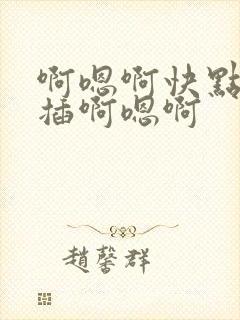 啊嗯啊快點
插啊嗯啊
趙馨群